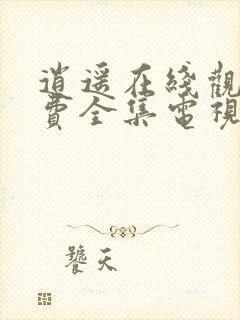 逍遥在綫觀
費全集電視
饕天